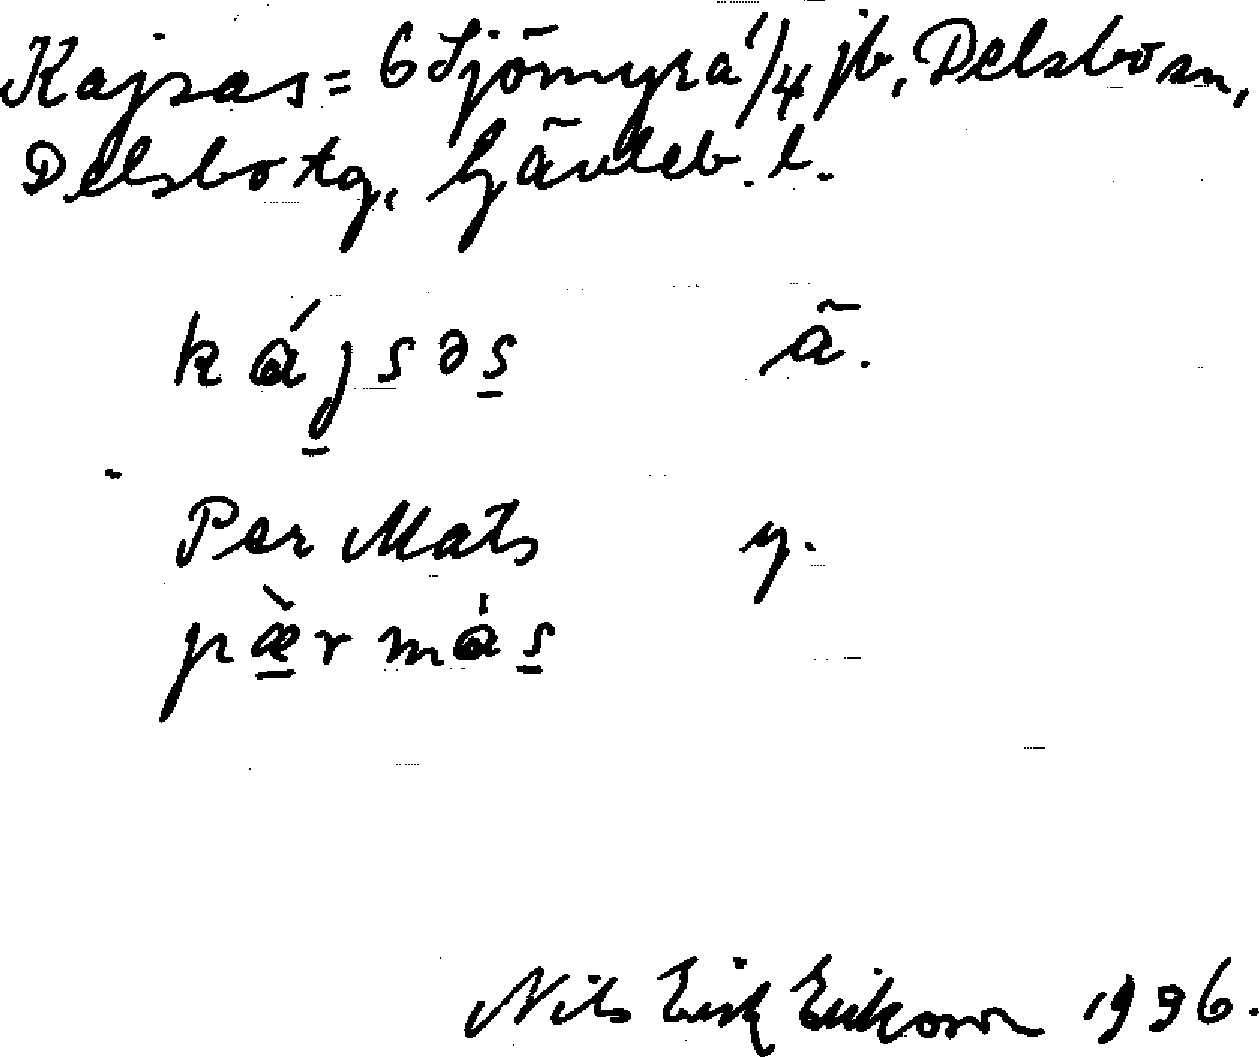 Kajsas = 6 Sjömyra 1/4 jb, Delsbo sn,
Delsbo tg, Gävleb. l.
kájsəs ä.
Per Mats y.
pæ̀r más
Nils Erik Erikson 1996.